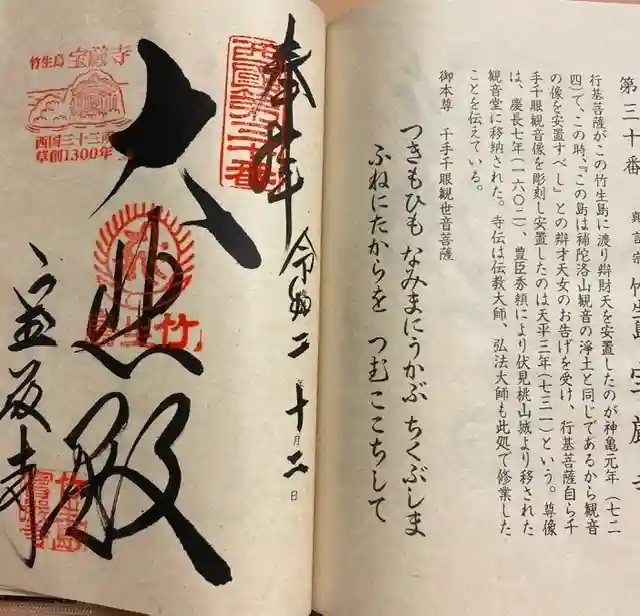 第三十番 真言宗 竹生島 宝厳寺
行基菩薩がこの竹生島に渡り辯財天を安置したのが神亀元年(七二
四)で、この時、『この島は補陀洛山観音の浄土と同じであるから観音
の像を安置すべし』との辯才天女のお告げを受け、行基菩薩自ら千
手千眼観音像を彫刻し安置したのは天平三年(七三一)という。尊像
は、慶長七年(一六〇二)、豊臣秀頼により伏見桃山城より移された
観音堂に移納された。寺伝は伝教大師、弘法大師も此処で修業した
ことを伝えている。
御本尊 千手千眼観世音菩薩
つきもひも なみまにうかぶ ちくぶしま
ふねにたからを つむここちして
西國第三十番
奉拝 令和二年十月二日
大悲殿
宝厳寺
竹生島 宝厳寺
西国三十三所
草創1300年
竹